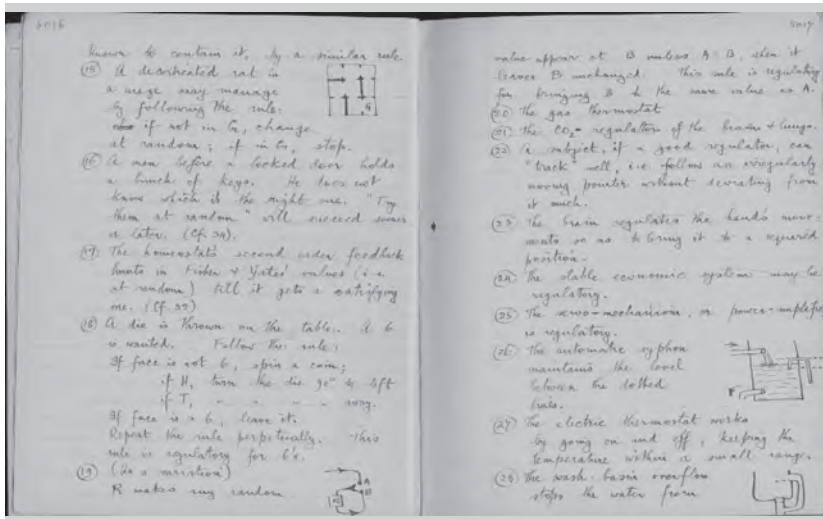 5016
known to contain it, by a similar rule.
(15) A decorticated rat in
a maze may manage
by following the rule:
if not in G, change
at random; if in G, stop.
G
(16) A man before a locked door holds
a bunch of keys. He does not
know which is the right one. "Try
them at random" will succeed sooner
or later. (Cf. 34).
(17) The homeostat's second order feedback
hunts in Fisher & Yates' values (i.e.
at random) till it gets a satisfying
one. (Cf. 39)
(18) A die is thrown on the table. A 6
is wanted. Follow the rule:
If face is not 6, spin a coin;
if H, turn the die 90° to left
if T, " " " " away.
If face is a 6, leave it.
Repeat the rule perpetually. This
rule is regulatory for 6's.
(19) (As a variation)
R makes any random
A
B
R
5017
value appear at B unless A = B, when it
leaves B unchanged. This rule is regulatory
for bringing B to the same value as A.
(20) The gas thermostat
(21) The CO2-regulation of the brain & lungs.
(22) A subject, if a good regulator, can
"track" well, i.e. follow an irregularly
moving pointer without deviating from
it much.
(23) The brain regulates the hand's move-
ments so as to bring it to a required
position.
(24) The stable economic system may be
regulatory.
(25) The servo-mechanism, or power-amplifier
is regulatory.
(26) The automatic syphon
maintains the level
between the dotted
lines.
(27) The electric thermostat works
by going on and off, keeping the
temperature within a small range.
(28) The wash-basin overflow
stops the water from